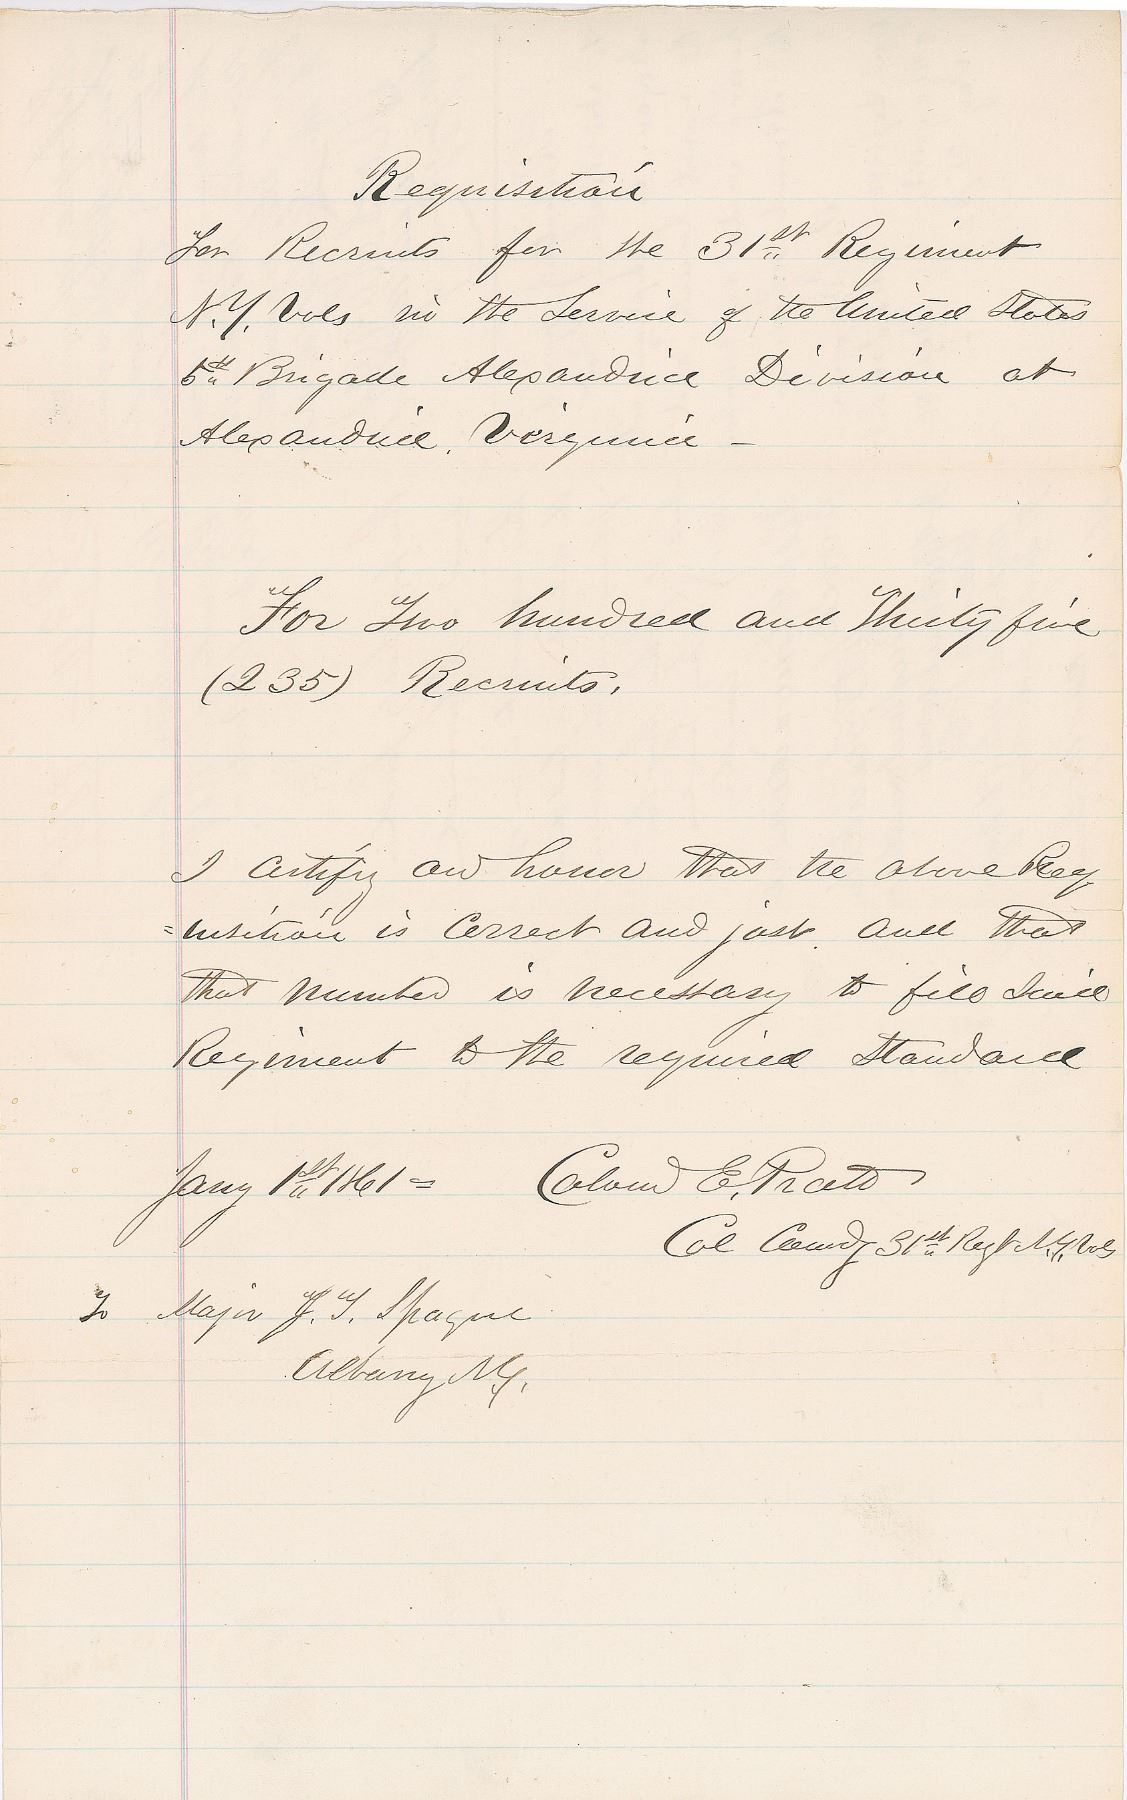 Requisition
For Recruits for the 31st Regiment
N.Y. Vols in the Service of the United States
5th Brigade Alexandria Division at
Alexandria, Virginia –
For Two hundred and Thirty five
(235) Recruits.
I certify on honor that the above Req
=uisition is Correct and just. and that
that number is necessary to fill said
Regiment to the required Standard
Jany 1st 1861 = Calvin E. Pratt
Col Comdg 31st Regt N.Y. Vols
To Major J. T. Spague
Albany N.Y.